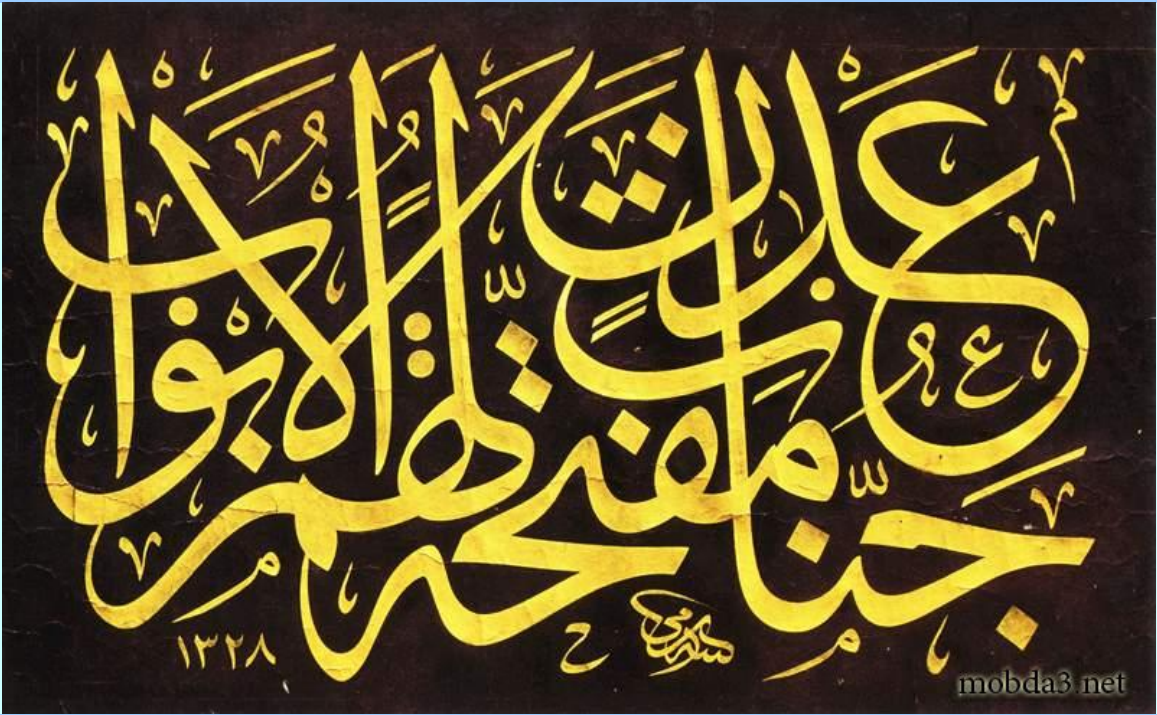 جَنَّاتِ عَدْنٍ مُفَتَّحَةً لَهُمُ الْأَبْوَابُ
١٣٢٨
mobda3.net